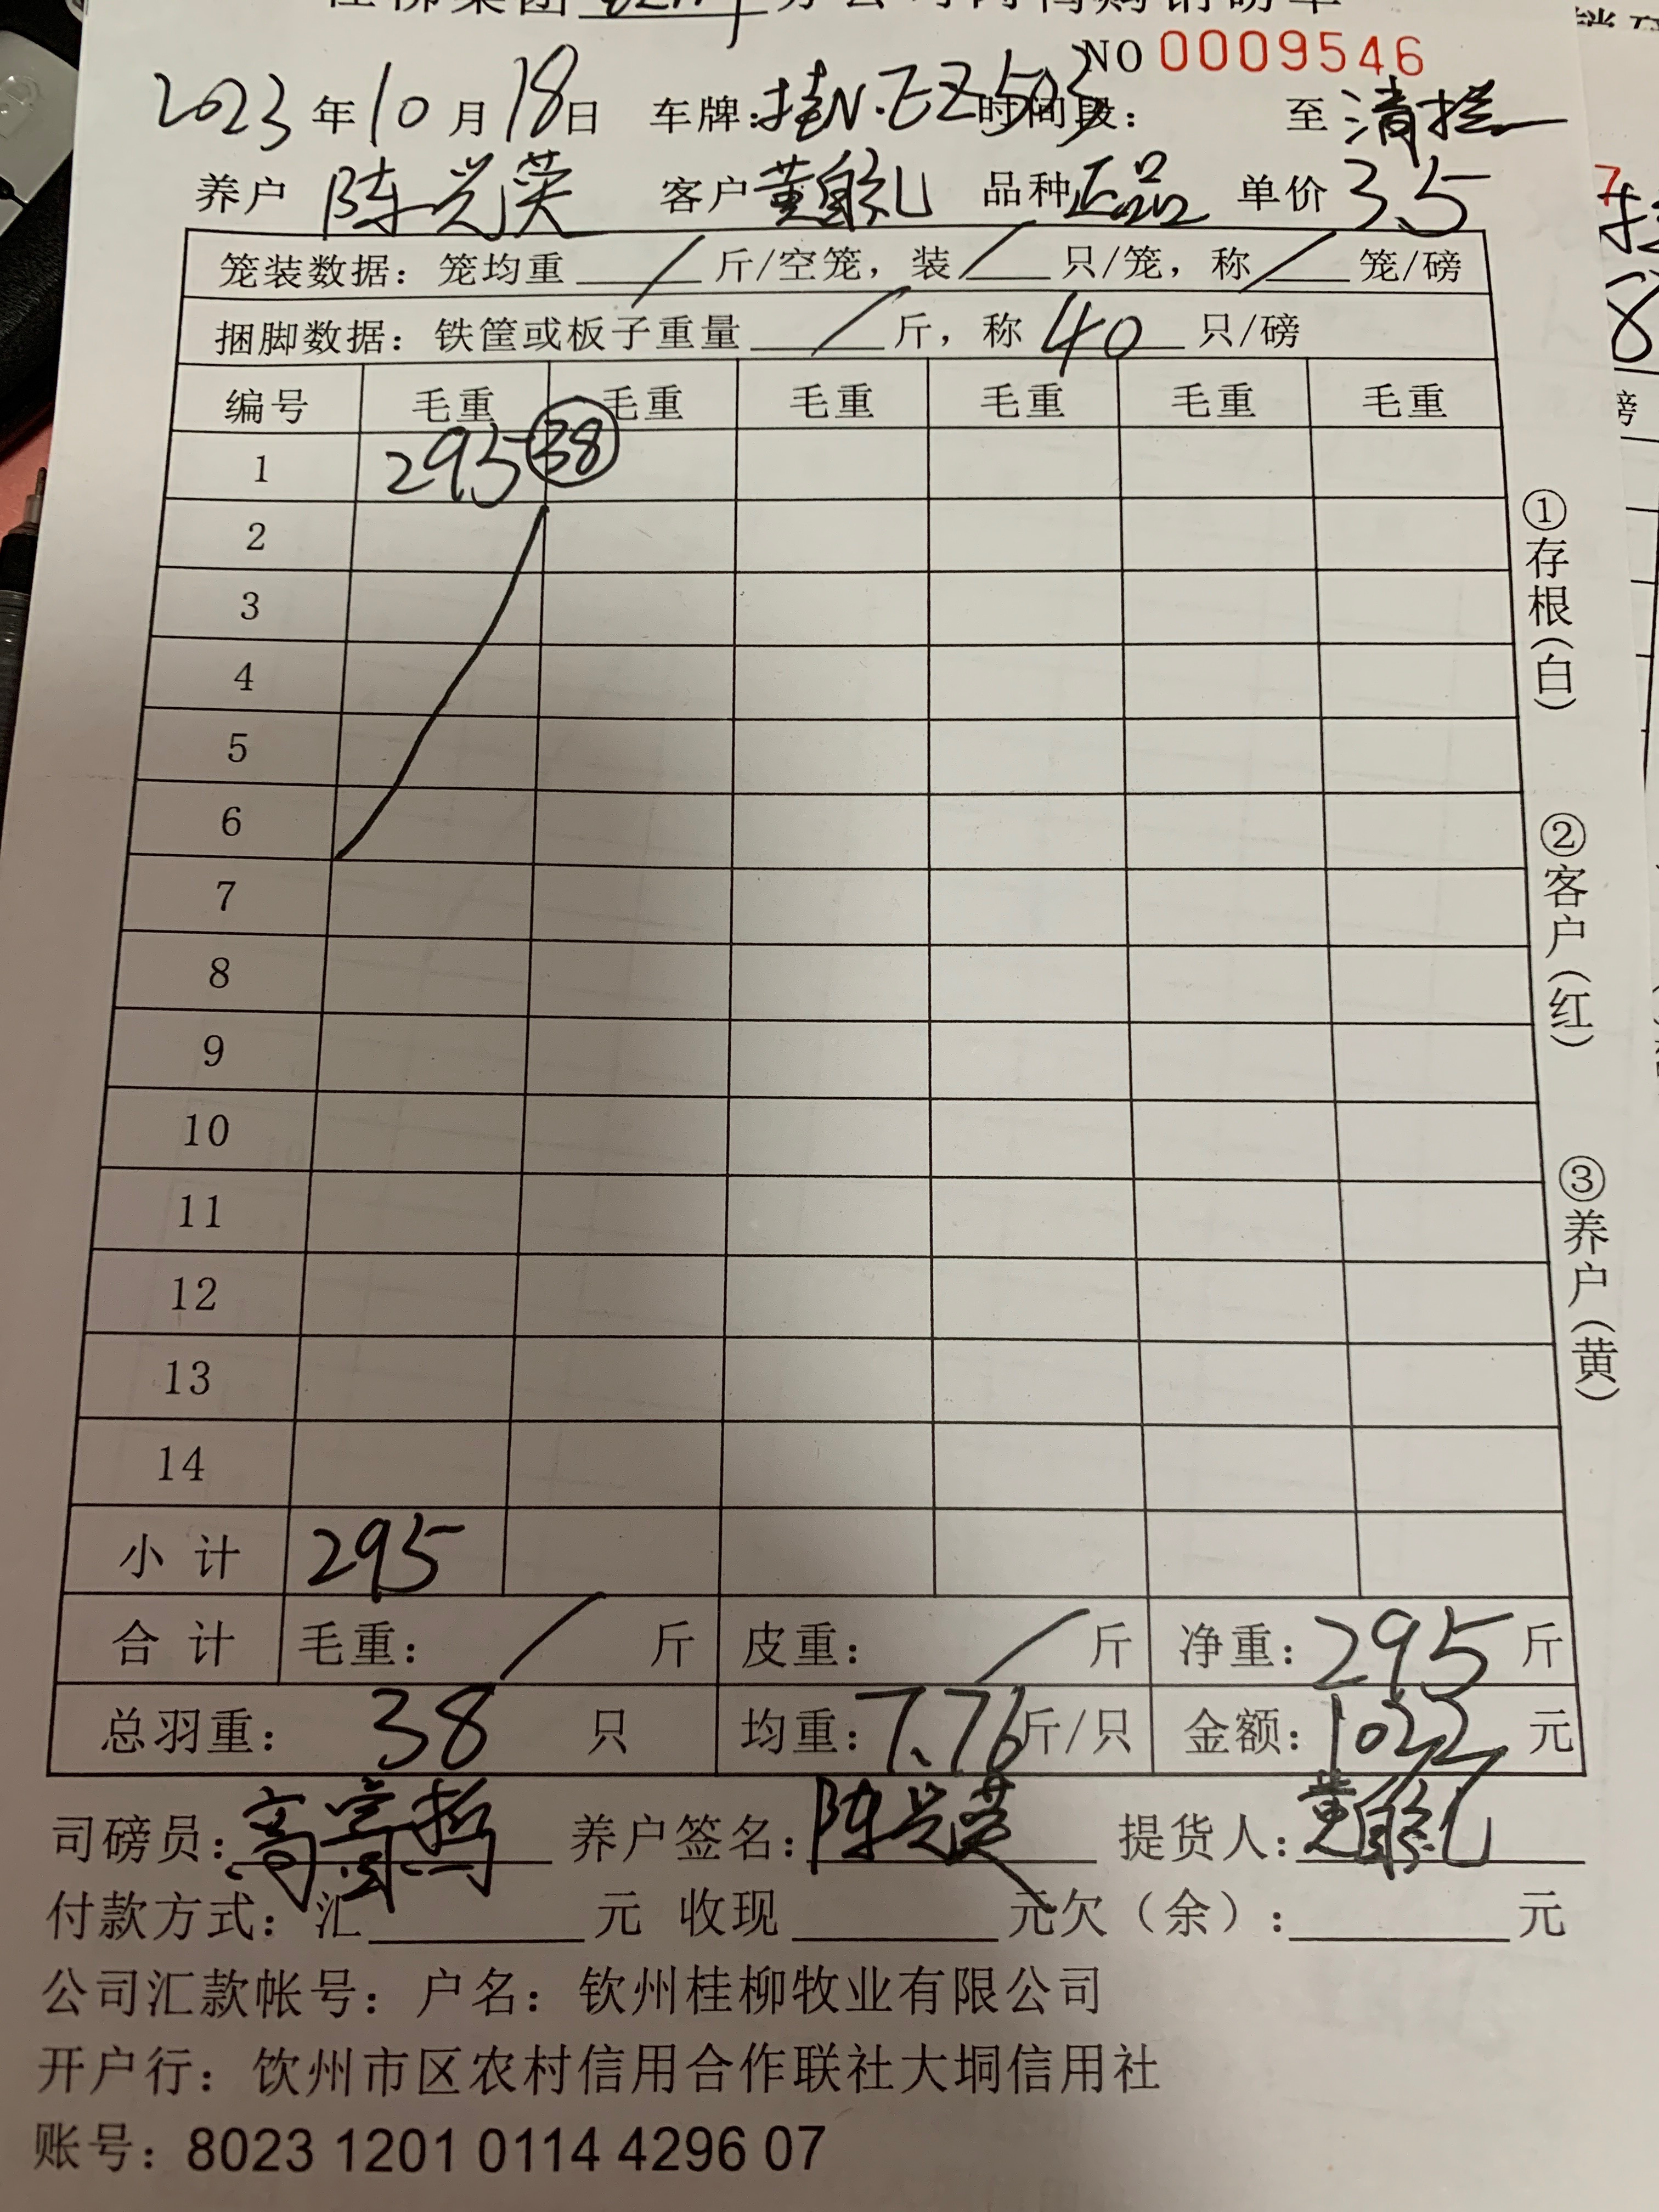 NO 0009546
2023年10月18日 车牌:桂N·EZ503 时间段: 至 清栏
养户 陈兴英 客户 黄自礼 品种 正品 单价 3.5
笼装数据:笼均重 / 斤/空笼,装 / 只/笼,称 / 笼/磅
捆脚数据:铁筐或板子重量 / 斤,称 40 只/磅
编号 毛重 毛重 毛重 毛重 毛重 毛重
1 295 38
2
3
4
5
6
7
8
9
10
11
12
13
14
小计 295
合计 毛重: / 斤 皮重: / 斤 净重:295斤
总羽重: 38 只 均重:7.76斤/只 金额:1022元
司磅员: 养户签名:陈兴英 提货人:
付款方式:汇 元 收现 元欠(余): 元
公司汇款帐号:户名:钦州桂柳牧业有限公司
开户行:钦州市区农村信用合作联社大垌信用社
账号:8023 1201 0114 4296 07
①存根(白)
②客户(红)
③养户(黄)